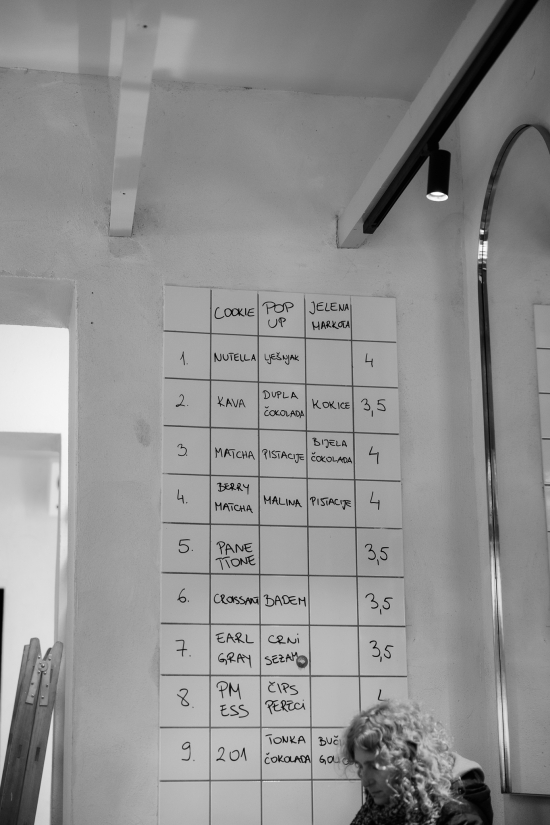 COOKIE POP UP JELENA MARKOTA
1. NUTELLA LJEŠNJAK 4
2. KAVA DUPLA ČOKOLADA KOKICE 3,5
3. MATCHA PISTACIJE BIJELA ČOKOLADA 4
4. BERRY MATCHA MALINA PISTACIJE 4
5. PANETTONE 3,5
6. CROISSANT BADEM 3,5
7. EARL GRAY CRNI SEZAM 3,5
8. PM ESS ČIPS PERECI
9. 201 TONKA ČOKOLADA